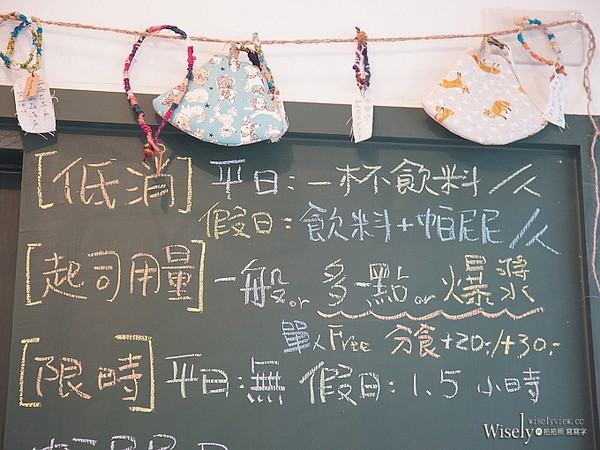 [低消] 平日：一杯飲料/人
假日：飲料+帕尼尼/人
[起司用量] 一般 or 多一點 or 爆漿
單人Free 分食+20.-/+30.-
[限時] 平日：無 假日：1.5 小時
wiselyview.cc
Wisely 拍拍照 寫寫字